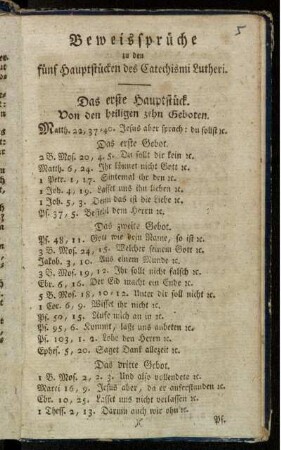 5
Beweissprüche
zu den
fünf Hauptstücken des Catechismi Lutheri.
Das erste Hauptstück.
Von den heiligen zehn Geboten.
Matth. 22, 37-40. Jesus aber sprach: du sollst ꝛc.
Das erste Gebot.
2 B. Mos. 20, 4. 5. Du sollt dir kein ꝛc.
Matth. 6, 24. Ihr könnet nicht Gott ꝛc.
1 Petr. 1, 17. Sintemal ihr den ꝛc.
1 Joh. 4, 19. Lasset uns ihn lieben ꝛc.
1 Joh. 5, 3. Denn das ist die Liebe ꝛc.
Ps. 37, 5. Befiehl dem Herrn ꝛc.
Das zweite Gebot.
Ps. 48, 11. Gott wie dein Name, so ist ꝛc.
3 B. Mos. 24, 15. Welcher seinem Gott ꝛc.
Jakob. 3, 10. Aus einem Munde ꝛc.
3 B. Mos. 19, 12. Ihr sollt nicht falsch ꝛc.
Ebr. 6, 16. Der Eid macht ein Ende ꝛc.
5 B. Mos. 18, 10-12. Unter dir soll nicht ꝛc.
1 Cor. 6, 9. Wisset ihr nicht ꝛc.
Ps. 50, 15. Rufe mich an in ꝛc.
Ps. 95, 6. Kommt, laßt uns anbeten ꝛc.
Ps. 103, 1. 2. Lobe den Herrn ꝛc.
Ephes. 5, 20. Saget Dank allezeit ꝛc.
Das dritte Gebot.
1 B. Mos. 2, 2. 3. Und also vollendete ꝛc.
Marci 16, 9. Jesus aber, da er auferstanden ꝛc.
Ebr. 10, 25. Lasset uns nicht verlassen ꝛc.
1 Thess. 2, 13. Darum auch wir ohn ꝛc.
Ps.